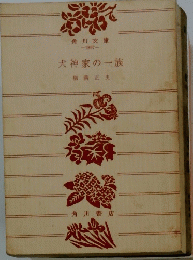 角川文庫
犬神家の一族
横溝正史
角川書店